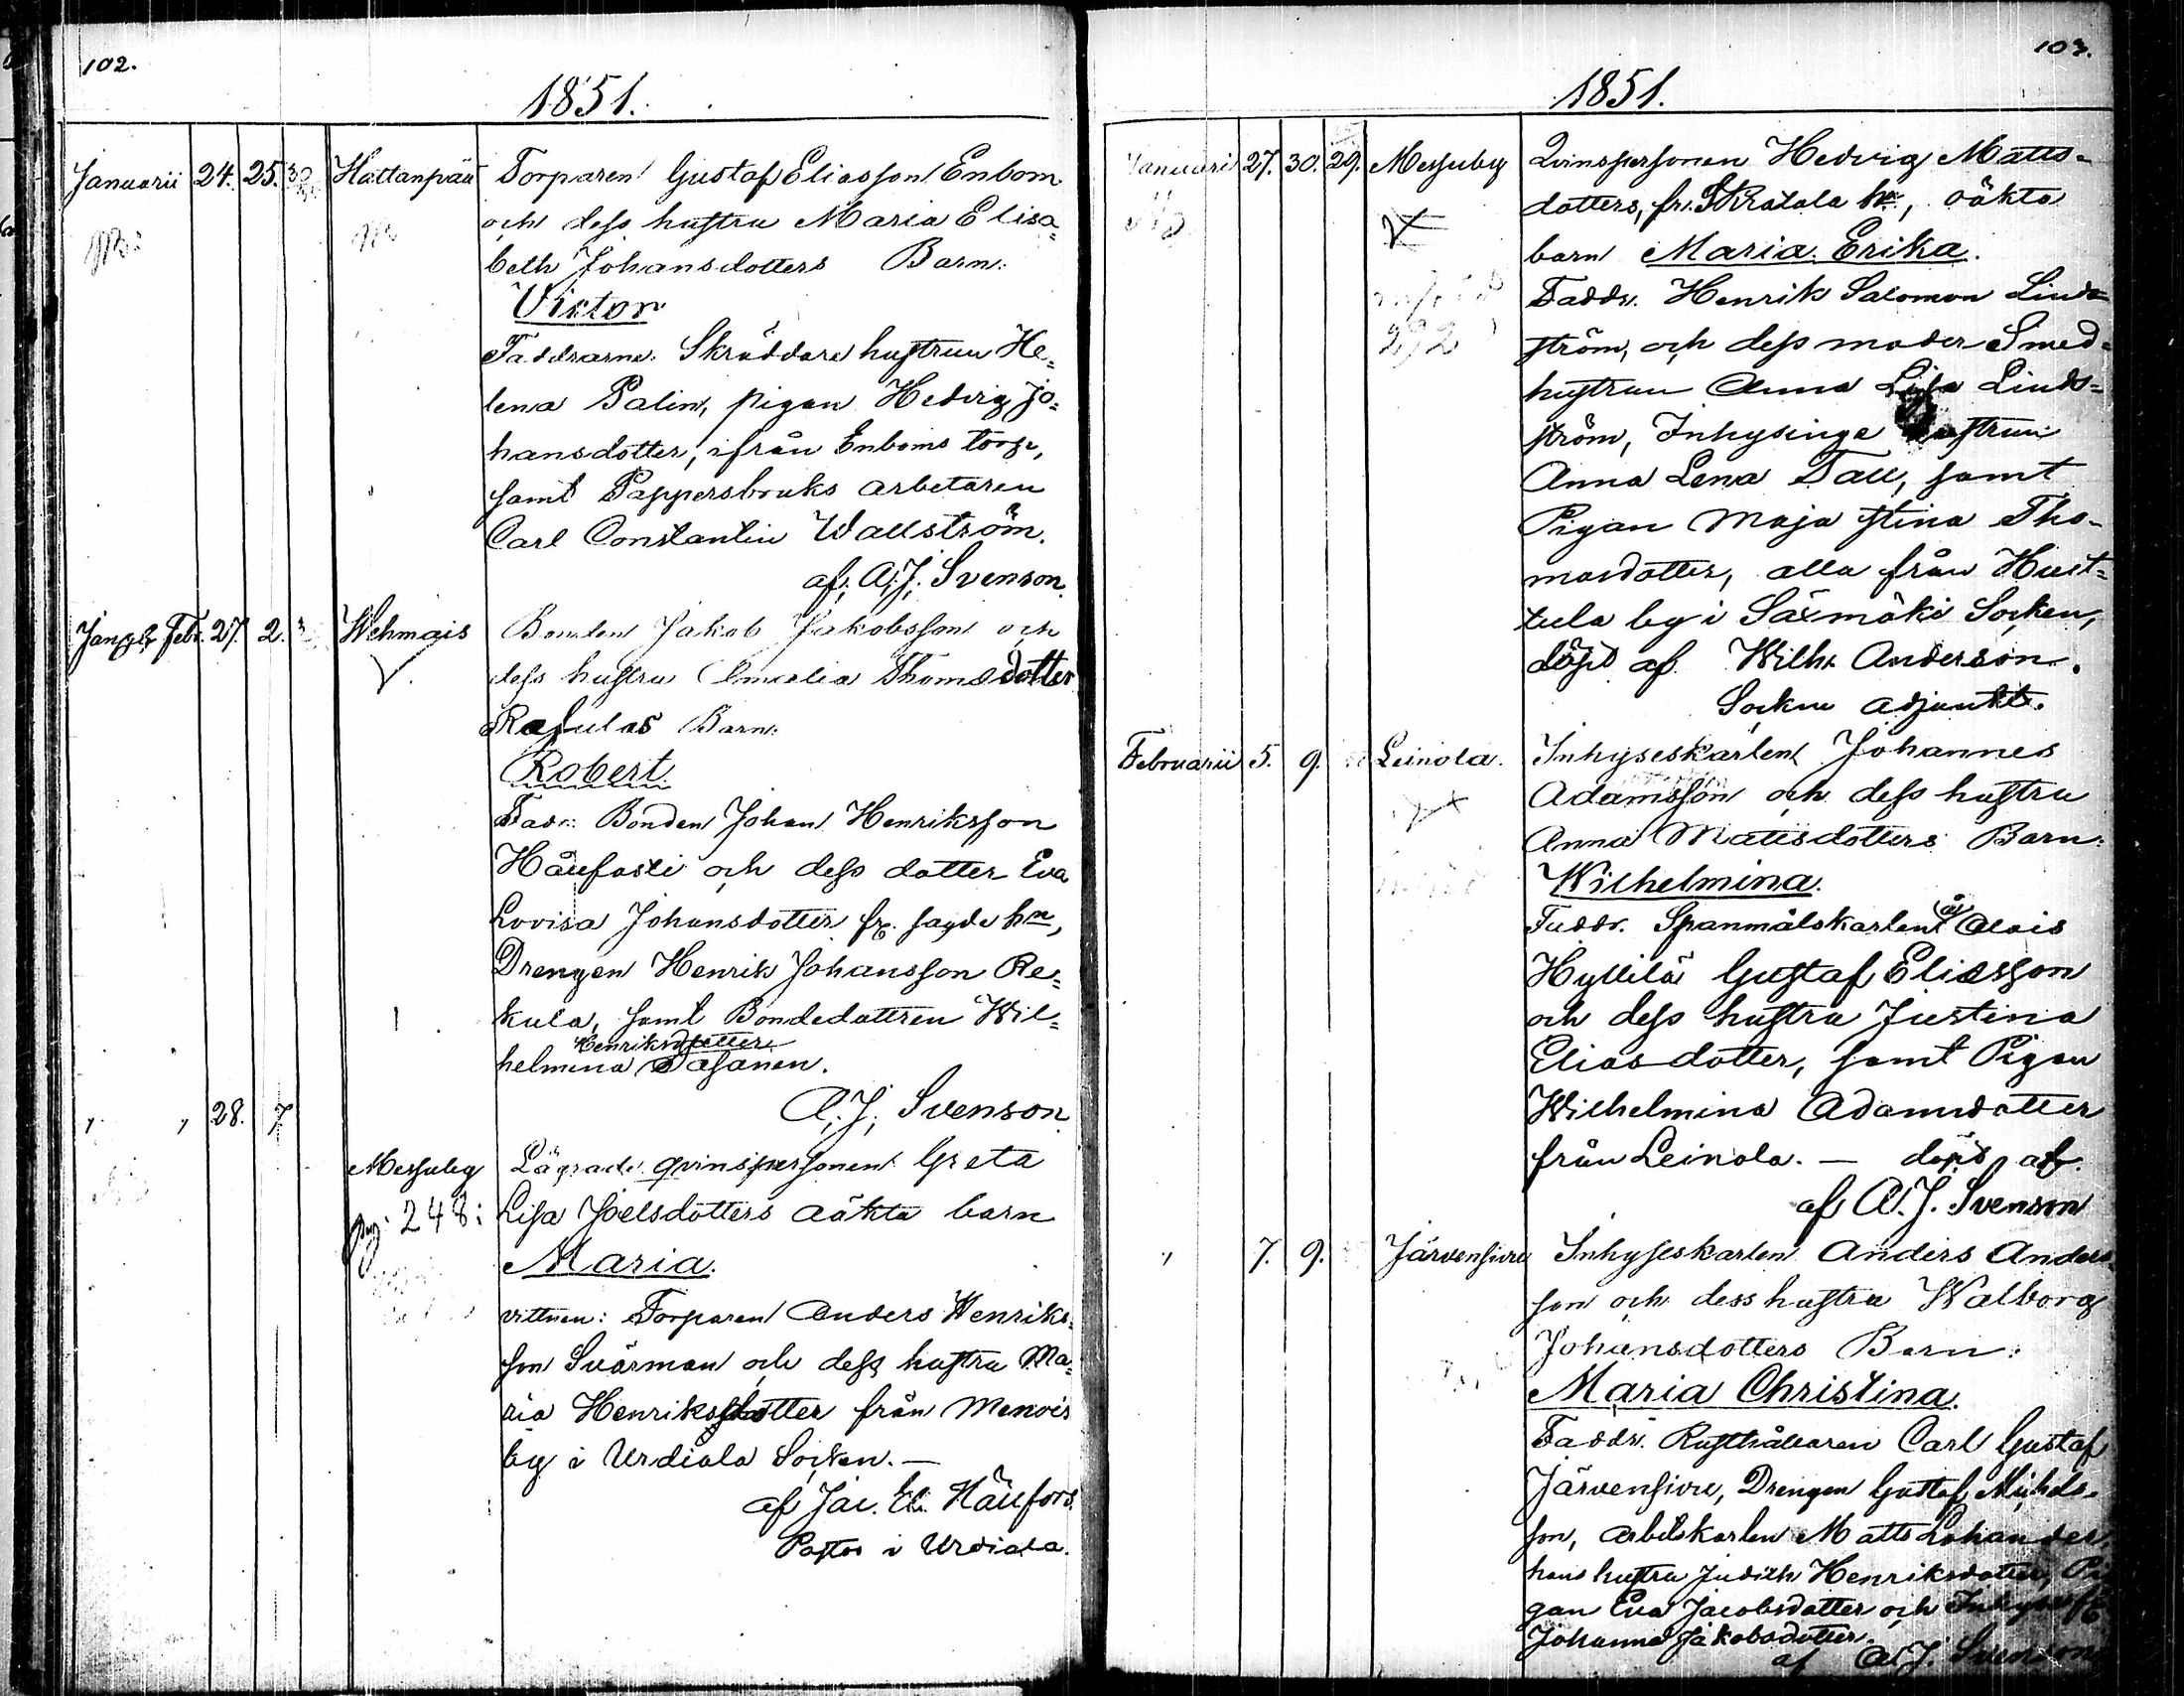 102.
1851.
Januarii 24. 25. 30 Hattanpää Torparen Gustaf Eliasson Enbom
och dess hustru Maria Elisa=
beth Johansdotters Barn:
Victor
Faddrarne: Skräddare hustrun He=
lena Palin, pigan Hedvig Jo=
hansdotter, ifrån Enboms torp,
samt Pappersbruks arbetaren
Carl Constantin Wallström.
af: A; J; Svenson.
Febr. 27. 2. Wehmais Bonden Jakob Jakobsson och
dess hustru Amalia Thomædotter
Barn:
Robert
Fadr: Bonden Johan Henriksson
och dess dotter Eva
Lovisa Johansdotter fr. sagde hn,
Drengen Henrik Johansson Re=
kula, samt Bondedottren Wil=
Henriksdotter
helmina Pasanen.
A; J; Svenson
" " 28. 7
Messuby Lägrade qvinspersonen Greta
pag: 248: Lisa Joelsdotters oäkta barn
Maria.
vittnen: Torparen Anders Henriks=
son Svärman och dess hustru Ma=
ria Henriksdotter från Menois
by i Urdiala Socken. —
af Jac. El. Hällfors.
Pastor i Urdiala.
103.
1851.
Januari 27. 30. 29. Messuby Qvinspersonen Hedvig Matts=
dotters, fr. hn, oäkta
barn Maria Erika.
292 Faddr. Henrik Salomon Lind=
ström, och dess moder Smed=
hustrun Anna Lisa Lind=
ström, Inhysinge hustrun
Anna Lena Tall, samt
Pigan Maja Stina Tho=
masdotter, alla från Huit=
tula by i Säxmäki Socken,
döpt af Wilh. Anderson.
Sockne adjunkt.
Februarii 5. 9. Leinola. Inhyseskarlen Johannes
Adamsson och dess hustru
Anna Mattsdotters Barn:
Wilhelmina.
Faddr. Spanmålskarlen å Alois
Hyllilä Gustaf Eliasson
och dess hustru Justina
Eliasdotter, samt Pigan
Wilhelmina Adamsdotter
från Leinola. — döpt af.
af A. J. Svenson
" 7. 9. Järvensivu Inhyseskarlen Anders Anders
son och dess hustru Walborg
Johansdotters Barn:
Maria Christina.
Faddr. Rusthållaren Carl Gustaf
Järvensivu, Drengen Gustaf Michels=
son, arbetskarlen Matts Lohander,
hans hustru Judith Henriksdotter, Pi
gan Eva Jacobsdotter och
Johanna Jakobsdotter.
af A. J. Svenson